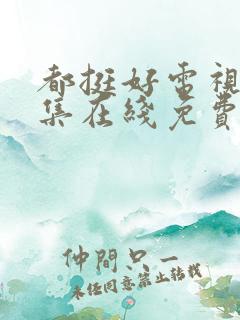 都挺好電視
集在綫免費
仲間只一
未任同意禁止转载